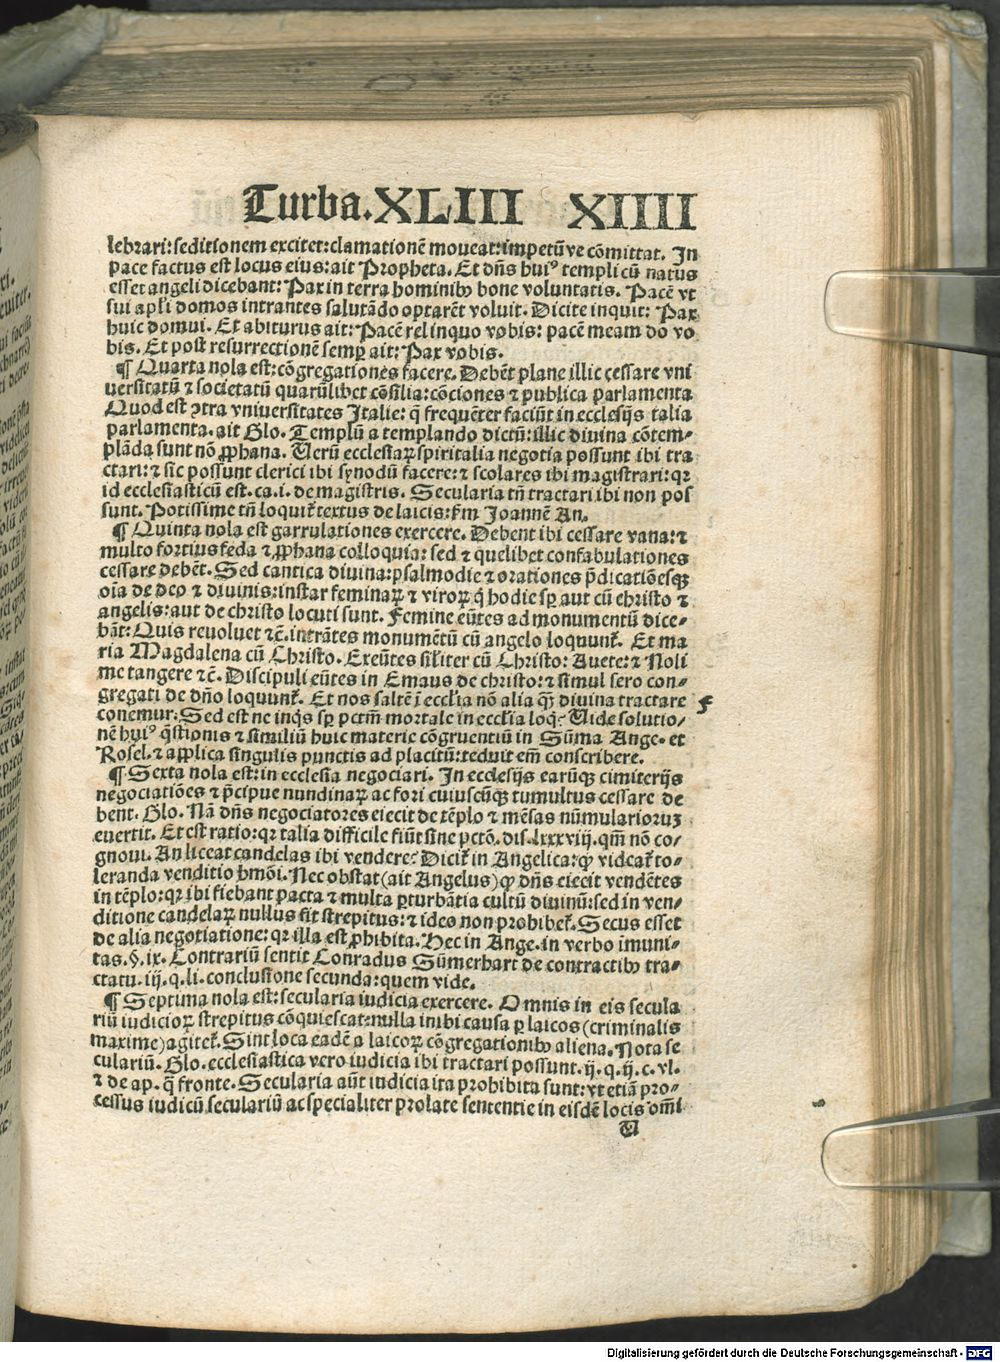 Turba.XLIII XIIII
lebrari: seditionem excitet: clamationē moveat: impetūve cōmittat. In
pace factus est locus eius: ait Propheta. Et dn̄s huiꝰ templi cū natus
esset angeli dicebant: Pax in terra hominibꝫ bone voluntatis. Pacē vt
sui apl̄i domos intrantes salutādo optarēt voluit. Dicite inquit: Pax
huic domui. Et abiturus ait: Pacē relinquo vobis: pacē meam do vo
bis. Et post resurrectionē semꝑ ait: Pax vobis.
¶ Quarta nola est: cōgregationes facere. Debēt plane illic cessare vni
uersitatū ⁊ societatū quarūlibet cōsilia: cōciones ⁊ publica parlamenta
Quod est ꝯtra vniuersitates Italie: q̄ frequēter faciūt in ecclesijs talia
parlamenta. ait Glo. Templū a templando dictū: illic divina cōtem-
plāda sunt nō ꝓphana. Verū ecclesiaꝝ spiritalia negotia possunt ibi tra
ctari: ⁊ sic possunt clerici ibi synodū facere: ⁊ scolares ibi magistrari: qꝛ
id ecclesiasticū est. ca. i. de magistris. Secularia tn̄ tractari ibi non pos
sunt. Potissime tn̄ loquit̃ textus de laicis: ẜm Joannē An.
¶ Quinta nola est garrulationes exercere. Debent ibi cessare vana: ⁊
multo fortius feda ⁊ ꝓphana colloquia: sed ⁊ quelibet confabulationes
cessare debēt. Sed cantica divina: psalmodie ⁊ orationes p̄dicatiōesqꝫ
oīa de deo ⁊ divinis: instar feminaꝝ ⁊ viroꝝ q̇ hodie sꝑ aut cū christo ⁊
angelis: aut de christo locuti sunt. Femine eūtes ad monumentū dice-
bāt: Quis revoluet ⁊c̄. intrātes monumētū cū angelo loquunt̃. Et ma
ria Magdalena cū Christo. Exeūtes sil̄iter cū Christo: Auete: ⁊ Noli
me tangere ⁊c̄. Discipuli eūtes in Emaus de christo: ⁊ simul sero con-
gregati de dn̄o loquunt̃. Et nos saltē ī eccl̄ia nō alia qꝫ̄ divina tractare f
conemur: Sed est ne inq̇s sꝑ pctm̄ mortale in eccl̄ia loq̇? Vide solutio-
nē huiꝰ q̄stionis ⁊ similiū huic materie cōgruentiū in Sūma Ange. et
Rosel. ⁊ applica singulis punctis ad placitū: teduit em̄ conscribere.
¶ Sexta nola est: in ecclesia negociari. In ecclesijs earūqꝫ cimiterijs
negociatiōes ⁊ p̄cipue nundinaꝝ ac fori cuiuscūqꝫ tumultus cessare de
bent. Glo. Nā dn̄s negociatores eiecit de tēplo ⁊ mēsas nūmulariorꝫ
evertit. Et est ratio: qꝛ talia difficile fiūt sine pctō. dis. lxxxviij. qm̄ nō co-
gnoui. An liceat candelas ibi vendere? Dicit̃ in Angelica: qꝙ videat̃ to-
leranda venditio hmōi. Nec obstat (ait Angelus) ꝙ dn̄s eiecit vendētes
in tēplo: qꝛ ibi fiebant pacta ⁊ multa ꝑturbātia cultū divinū: sed in ven-
ditione candelaꝝ nullus fit strepitus: ⁊ ideo non prohibet̃. Secus esset
de alia negotiatione: qꝛ illa est ꝓhibita. Hec in Ange. in verbo imuni-
tas. §. ix. Contrariū sentit Conradus Sūmerhart de contractibꝫ tra-
ctatu. iij. q. li. conclusione secunda: quem vide.
¶ Septima nola est: secularia iudicia exercere. Omnis in eis secula
riū iudicioꝝ strepitus cōquiescat: nulla inibi causa ꝑ laicos (criminalis
maxime) agitet̃. Sint loca eadē a laicoꝝ cōgregationibꝫ aliena. Nota se
culariū. Glo. ecclesiastica vero iudicia ibi tractari possunt. ij. q. ij. c. vl.
⁊ de ap. q̄ fronte. Secularia aūt iudicia ita prohibita sunt: vt etiā pro-
cessus iudicū seculariū ac specialiter prolate sententie in eisdē locis om̄i
V
Digitalisierung gefördert durch die Deutsche Forschungsgemeinschaft - DFG